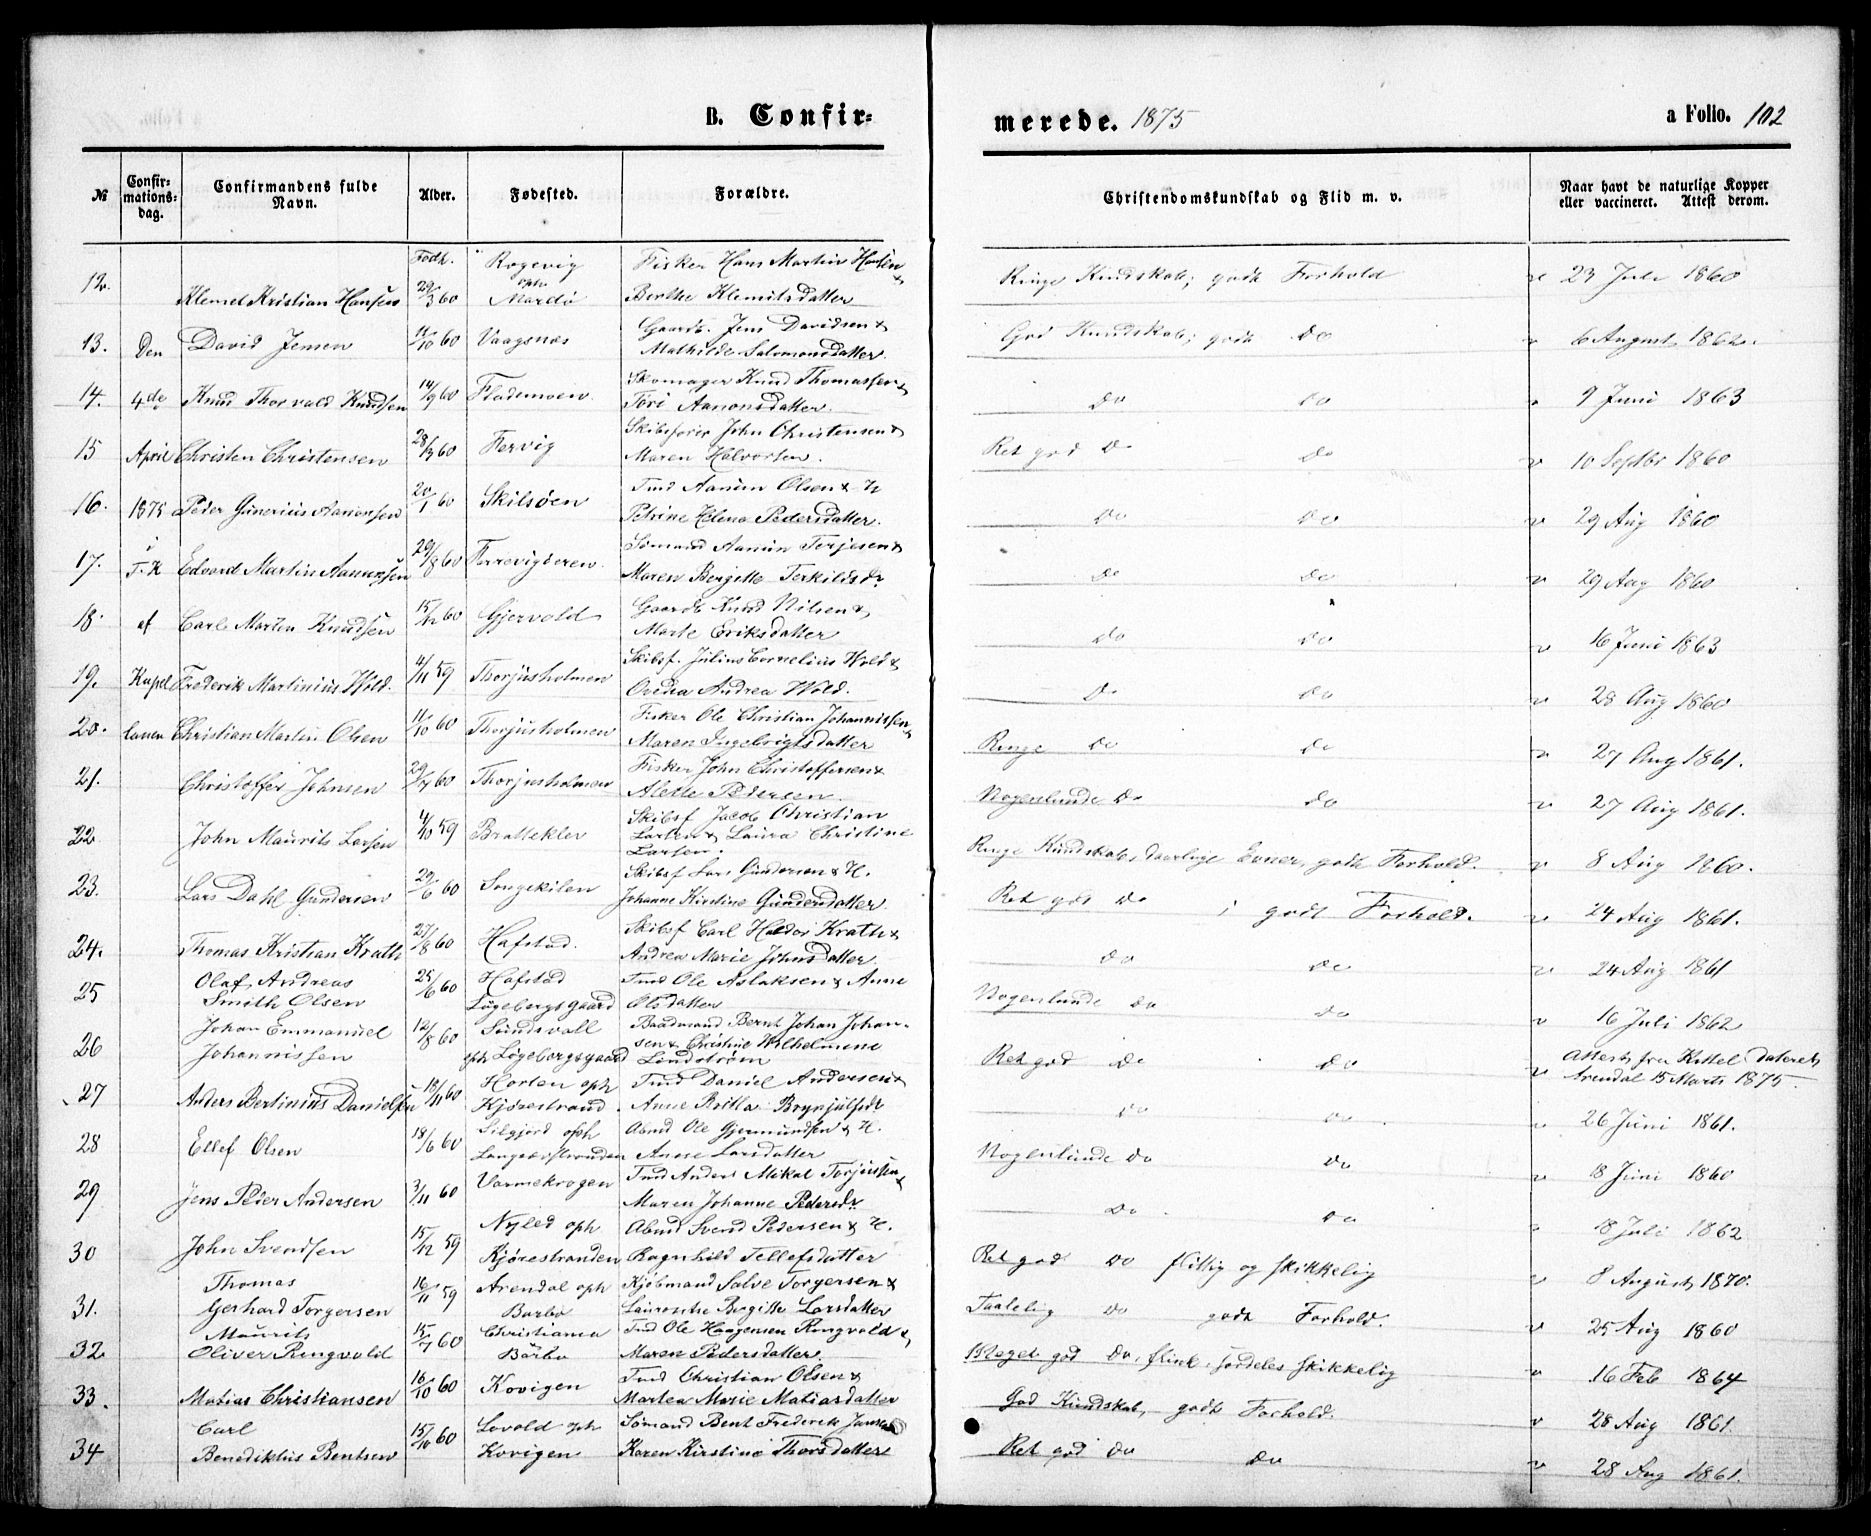 B. Confir-
merede. 1875
a Folio. 102
№
Confir-
mations-
dag.
Confirmandens fulde
Navn.
Alder.
Fødested.
Forældre.
Christendomskundskab og Flid m. v.
Naar havt de naturlige Kopper
eller vaccineret. Attest derom.
Den
4de
April
1875
i
T. K
af
Kapel
lanen
12. Klemet Kristian Hansen
Født. 29/3 60
Rogevig
oph
Mardø
Fisker Hans Martin Hansen &
Berthe Klemitsdatter
Ringe Kundskab; godt Forhold
v 23 Juli 1860
13. David Jensen 11/10 60 Vaagsnæs
Gaardb. Jens Davidsen &
Mathilde Salomonsdatter
God Kundskab; godt Do
v 6 August 1862.
14. Knud Thorvald Knudsen 14/9 60 Flademoen
Skomager Knud Thomassen &
Tori Aanonsdatter.
Do Do
v 9 Juni 1863
15 Christen Christensen 28/3 60 Fervig
Skibsfører John Christensen &
Maren Halvorsen.
Ret god Do Do
v 10 Septbr 1860
16. Peder Gunerius Aanonsen 20/1 60 Skilsøen
Tmd Aanun Olsen & H
Petrine Helene Pedersdatter.
Do Do
v 29 Aug 1860
17. Edvard Martin Aanunsen 29/8 60 Færevigderen
Sømand Aanun Terjesen &
Maren Bergitte Terkildsdr
Do Do
v 29 Aug 1860
18. Carl Marten Knudsen 15/12 60 Gjervold
Gaardb Knud Nilsen &
Marte Eriksdatter
Do Do
v 16 Juni 1863
19. Frederik Martinius Wold. 4/11 59 Thorjusholmen
Skibsf. Julius Cornelius Wold &
Ovidia Andrea Wold.
Do Do
v 28 Aug 1860
20. Christian Martin Olsen 11/10 60 Thorjusholmen
Fisker Ole Christian Johannissen &
Maren Ingebrigtsdatter
Ringe Do Do
v 27 Aug 1861.
21. Christoffer Johnsen 29/7 60 Thorjusholmen
Fisker John Christoffersen &
Alette Pedersen
Nogenlunde Do Do
v 27 Aug 1861.
22 John Maurits Larsen 4/10 59 Bratteklev
Skibsf Jacob Christian
Larsen & Laura Christine
Larsen.
Ringe Kundskab, daarlige Evner, godt Forhold.
v 8 Aug 1860.
23. Lars Dahl Gundersen 29/6 60 Songekilen
Skibsf Lars Gundersen & H.
Johanne Kirstine Gundersdatter.
Ret god Do ; godt Forhold.
v 24 Aug 1861.
24. Thomas Kristian Krath 27/8 60 Hafstad.
Skibsf Carl Haldor Krath &
Andrea Marie Johnsdatter
Do Do
v 24 Aug 1861
25 Olaf Andreas
Smith Olsen 25/6 60 Hafstad
Løgebergsgaard
Tmd Ole Aslaksen & Anne
Olsdatter
Nogenlunde Do Do
v 16 Juli 1862
26 Johan Emmanuel
Johannissen 12/8 60 Sundsvall
oph Løgebergsgaard
Baadsmand Bernt Johan Johan-
sen & Christine Wilhelmine
Lindstrøm
Ret god Do Do
v Attest fra Kittel dateret
Arendal 15 Marts 1875.
27 Anders Bertinius Danielsen 18/11 60 Horten oph
Kjørestrand.
Tmd Daniel Andersen &
Anne Britta Brynjulfsdr
Do Do
v 26 Juni 1861.
28 Ellef Olsen 18/6 60 Silgjord oph
Langsæstranden
Abmd Ole Gjermundsen & H.
Anne Larsdatter
Nogenlunde Do Do
v 18 Juni 1860
29 Jens Peder Andersen 3/11 60 Varmekrogen
Tmd Anders Mikal Torjussen &
Maren Johanne Pedersdr
Do Do
v 18 Juli 1862
30 John Svendsen 15/12 59 Nyled oph
Kjørestranden
Abmd Svend Pedersen & H.
Ragnhild Tellefsdatter
Ret god Do flittig og skikkelig
v 8 August 1870.
31. Thomas
Gerhard Torgersen 16/11 59 Arendal oph
Barbo
Kjøbmand Salve Torgersen &
Laurentze Birgitte Larsdatter
Taalelig Do godt Forhold.
v 25 Aug 1860
32 Maurits
Oliver Ringvold 15/7 60 Christiania
Barbo
Tmd Ole Haagensen Ringvold &
Maren Pedersdatter
Meget god Do, flink, særdeles skikkelig
v 16 Feb 1864
33. Matias Christiansen 16/10 60 Kovigen
Tmd Christian Olsen &
Martea Marie Matiasdatter
God Kundskab, godt Forhold.
v 28 Aug 1861.
34 Carl
Benediktus Bentsen 15/10 60 Lovold oph
Kovigen
Sømand Bent Frederik Jansen &
Karen Kirstine Thorsdatter
Ret god Do Do
v 28 Aug 1861.